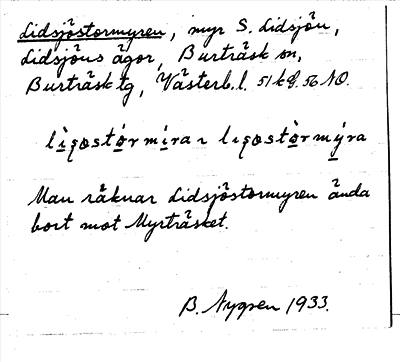 Lidsjöstormyren, myr S. Lidsjön,
Lidsjöns ägor, Burträsk sn,
Burträsk tg, Västerb.l. 51 k 8. 56 NO.
Man räknar Lidsjöstormyren ända
bort mot Myrträsket.
B. Nygren 1933.